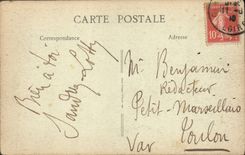 CARTE POSTALE
Correspondance
Adresse
Bien à toi
Mr Benjamin
Rédacteur
Petit-Marseillais
Toulon
Var
10